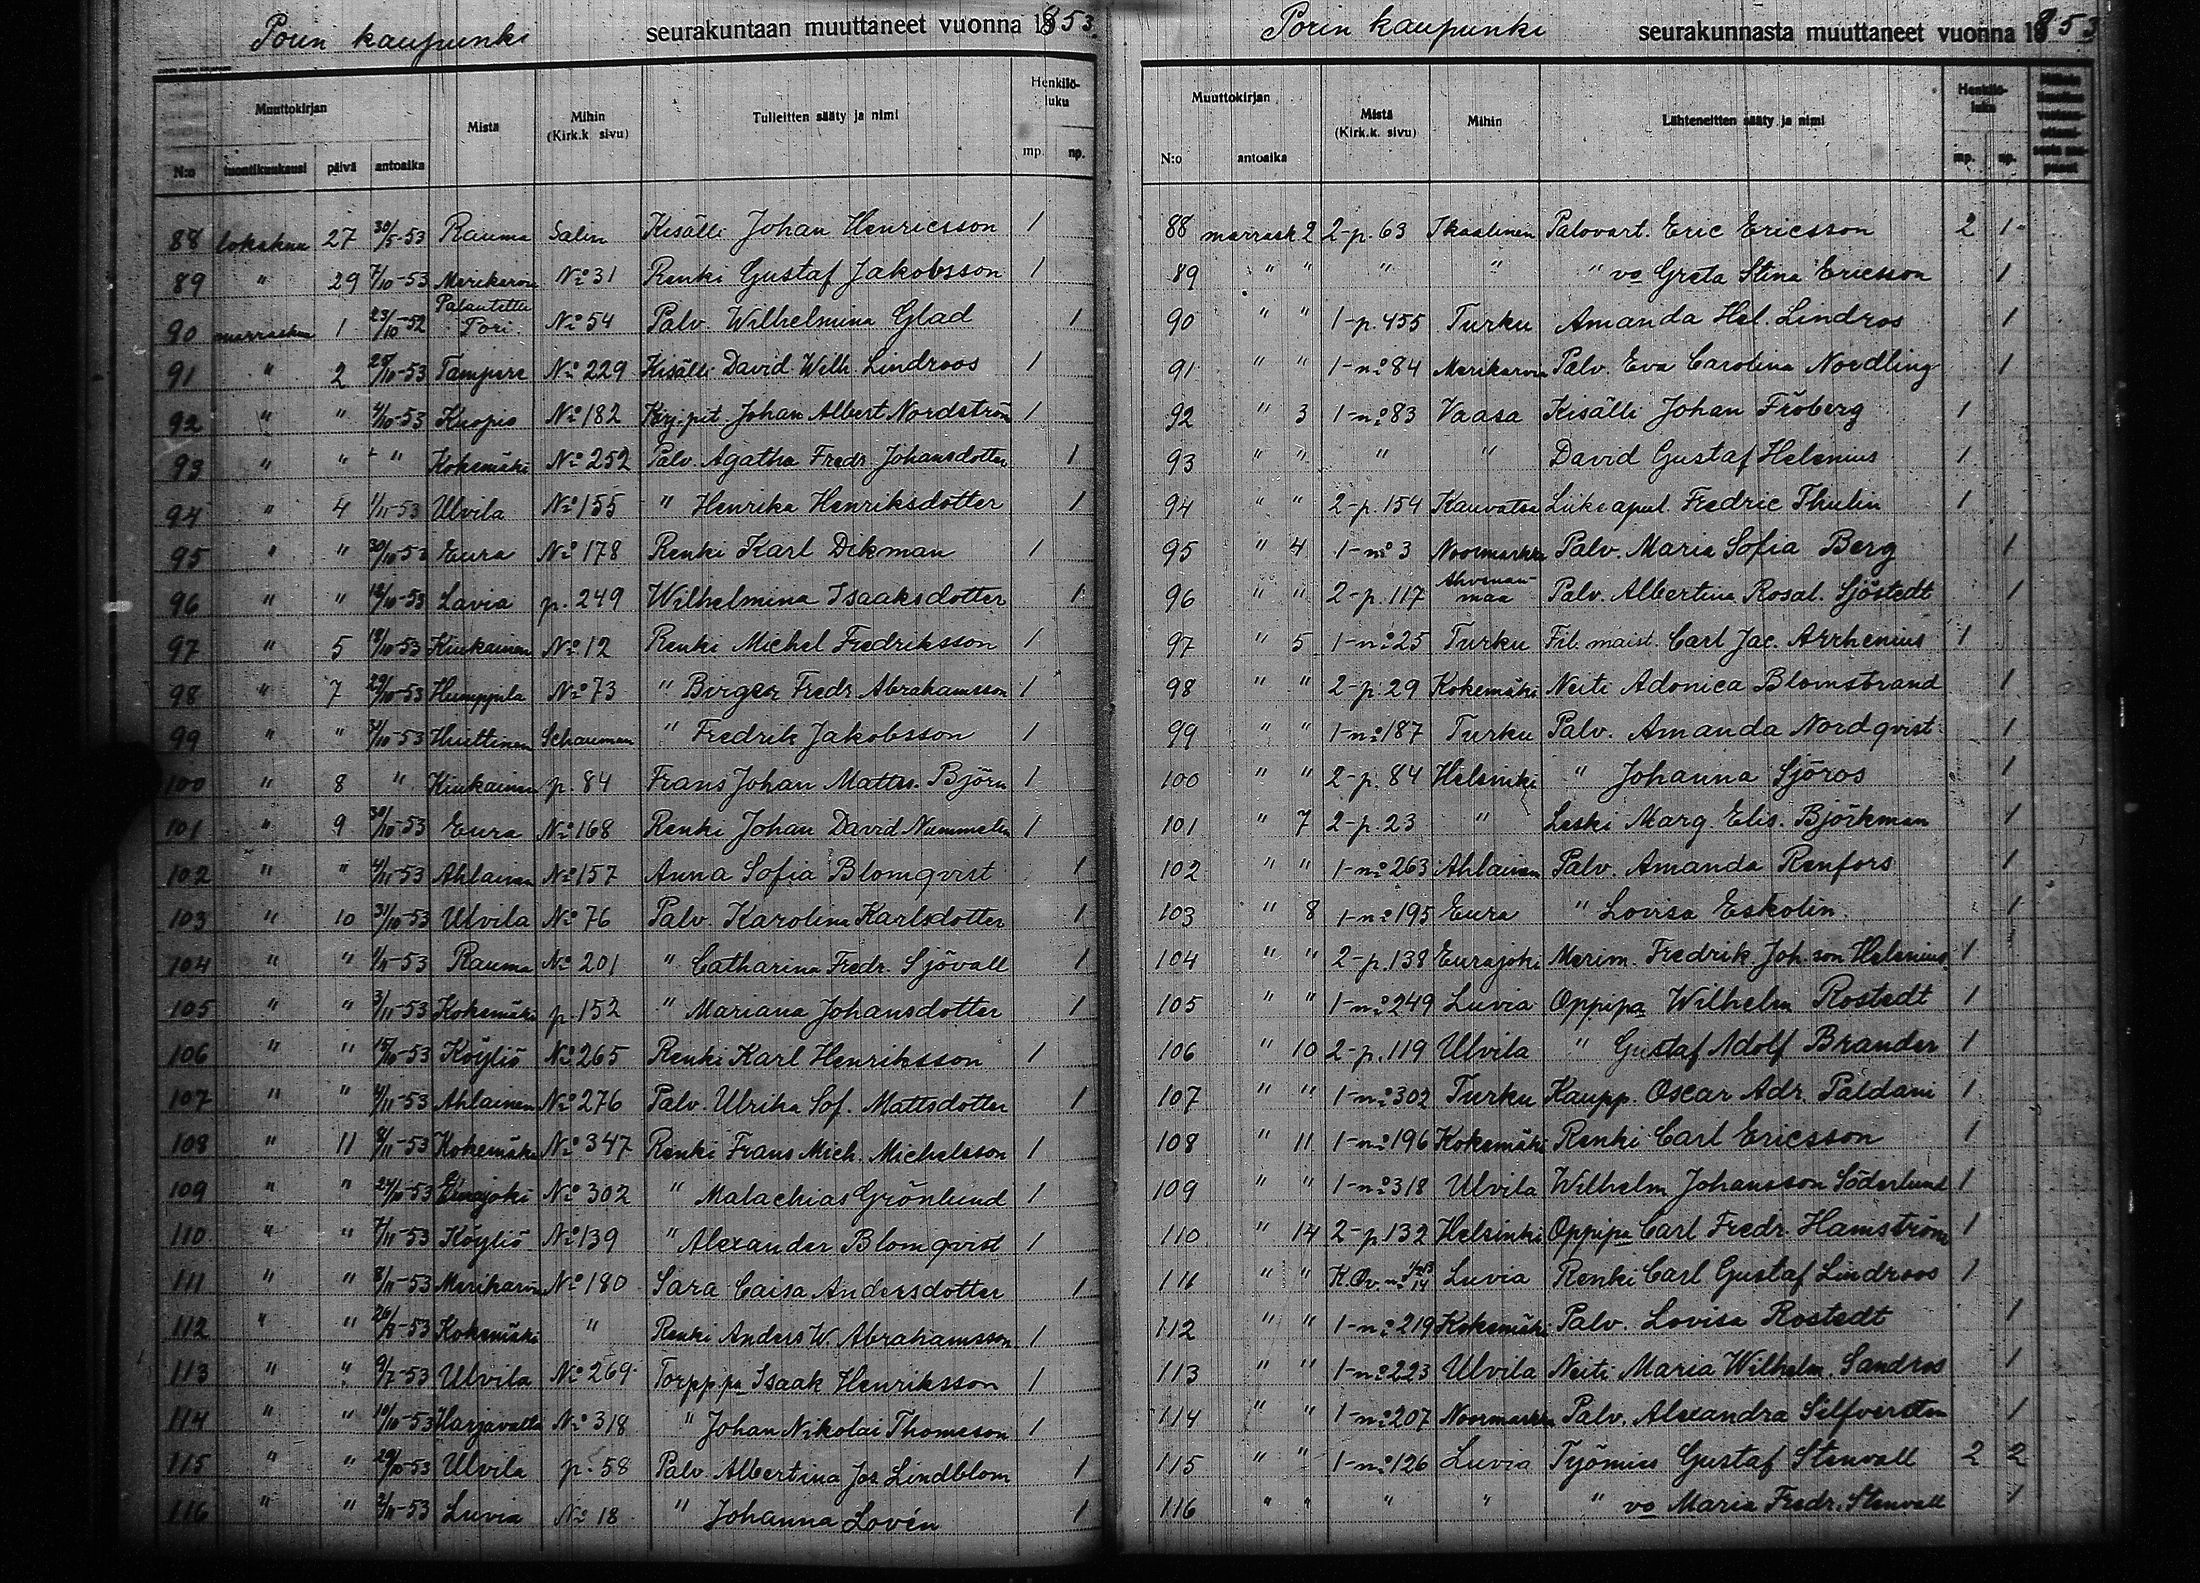 Porin kaupunki seurakuntaan muuttaneet vuonna 1853.
Muuttokirjan Mistä Mihin (Kirk.k sivu) Tulleitten sääty ja nimi Henkilö-luku
N:o tuontikuukausi päivä antoaika mp. np.
88 lokakuu 27 30/5-53 Rauma Salin Kisälli Johan Henricsson 1
89 " 29 7/10-53 Merikarvia No 31 Renki Gustaf Jakobsson 1
90 marraskuu 1 23/10-52 Palautettu Pori No 54 Palv. Wilhelmina Glad 1
91 " 2 29/10-53 Tampere No 229 Kisälli David Wilh. Lindroos 1
92 " " 4/10-53 Kuopio No 182 Kirj.pit. Johan Albert Nordström 1
93 " " " Kokemäki No 252 Palv. Agatha Fredr. Johansdotter 1
94 " 4 1/11-53 Ulvila No 155 " Henrika Henriksdotter 1
95 " " 30/10-53 Eura No 178 Renki Karl Dikman 1
96 " " 19/10-53 Lavia p. 249 Wilhelmina Isaaksdotter 1
97 " 5 18/10-53 Kiukainen No 12 Renki Michel Fredriksson 1
98 " 7 29/10-53 Humppila No 73 " Birger Fredr. Abrahamsson 1
99 " " 31/10-53 Huittinen Schauman " Fredrik Jakobsson 1
100 " 8 " Kiukainen p. 84 Frans Johan Matts. Björn 1
101 " 9 30/10-53 Eura No 168 Renki Johan David Nummelin 1
102 " " 4/11-53 Ahlainen No 157 Anna Sofia Blomqvist 1
103 " 10 31/10-53 Ulvila No 76 Palv. Karolina Karlsdotter 1
104 " " 1/11-53 Rauma No 201 " Catharina Fredr. Sjövall 1
105 " " 3/11-53 Kokemäki p. 152 " Mariana Johansdotter 1
106 " " 15/10-53 Köyliö No 265 Renki Karl Henriksson 1
107 " " 4/11-53 Ahlainen No 276 Palv. Ulrika Sof. Mattsdotter 1
108 " 11 8/11-53 Kokemäki No 347 Renki Frans Mich. Michelsson 1
109 " " 24/10-53 Eurajoki No 302 " Malachias Grönlund 1
110 " " 7/11-53 Köyliö No 139 " Alexander Blomqvist 1
111 " " 8/11-53 Merikarvia No 180 Sara Caisa Andersdotter 1
112 " " 26/8-53 Kokemäki " Renki Anders W. Abrahamsson 1
113 " " 9/7-53 Ulvila No 269 Torpp.pa Isaak Henriksson 1
114 " " 10/10-53 Harjavalta No 318 " Johan Nikolai Thomsson 1
115 " " 29/10-53 Ulvila p. 58 Palv. Albertina Jos. Lindblom 1
116 " " 2/11-53 Luvia No 18 " Johanna Lovén 1
Porin kaupunki seurakunnasta muuttaneet vuonna 1853
Muuttokirjan Mistä (Kirk.k. sivu) Mihin Lähteneitten sääty ja nimi Henkilö-luku
N:o antoaika mp. np.
88 marrask 2 2-p. 63 Ikaalinen Palovart. Eric Ericsson 2 1
89 " " " " " vo Greta Stina Ericsson 1
90 " " 1-p. 455 Turku Amanda Hel. Lindros 1
91 " " 1-no 84 Merikarvia Palv. Eva Carolina Nordling 1
92 " 3 1-no 83 Vaasa Kisälli Johan Fröberg 1
93 " " " " David Gustaf Helenius 1
94 " " 2-p. 154 Kauvatsa Liikeapul. Fredric Thulin 1
95 " 4 1-no 3 Noormarkku Palv. Maria Sofia Berg 1
96 " " 2-p. 117 Ahvenanmaa Palv. Albertina Rosal. Sjöstedt 1
97 " 5 1-no 25 Turku Fil. maist. Carl Jac. Arrhenius 1
98 " " 2-p. 29 Kokemäki Neiti Adonica Blomstrand 1
99 " " 1-no 187 Turku Palv. Amanda Nordqvist 1
100 " " 2-p. 84 Helsinki " Johanna Sjöros 1
101 " 7 2-p. 23 " Leski Marg. Elis. Björkman 1
102 " " 1-no 263 Ahlainen Palv. Amanda Renfors 1
103 " 8 1-no 195 Eura " Lovisa Eskolin 1
104 " " 2-p. 138 Eurajoki Merim. Fredrik Joh.son Helenius 1
105 " " 1-no 249 Luvia Oppipa Wilhelm Rostedt 1
106 " 10 2-p. 119 Ulvila " Gustaf Adolf Brander 1
107 " " 1-no 302 Turku Kaupp. Oscar Adr. Paldani 1
108 " 11 1-no 196 Kokemäki Renki Carl Ericsson 1
109 " " 1-no 318 Ulvila Wilhelm Johansson Söderlund 1
110 " 14 2-p. 132 Helsinki Oppipa Carl Fredr. Hamström 1
111 " " Luvia Renki Carl Gustaf Lindroos 1
112 " " 1-no 219 Kokemäki Palv. Lovisa Rostedt 1
113 " " 1-no 223 Ulvila Neiti Maria Wilhelm. Sandros 1
114 " " 1-no 207 Noormarkku Palv. Alexandra Silfversten 1
115 " " 1-no 126 Luvia Työmies Gustaf Stenvall 2 2
116 " " " " " vo Maria Fredr. Stenvall 1